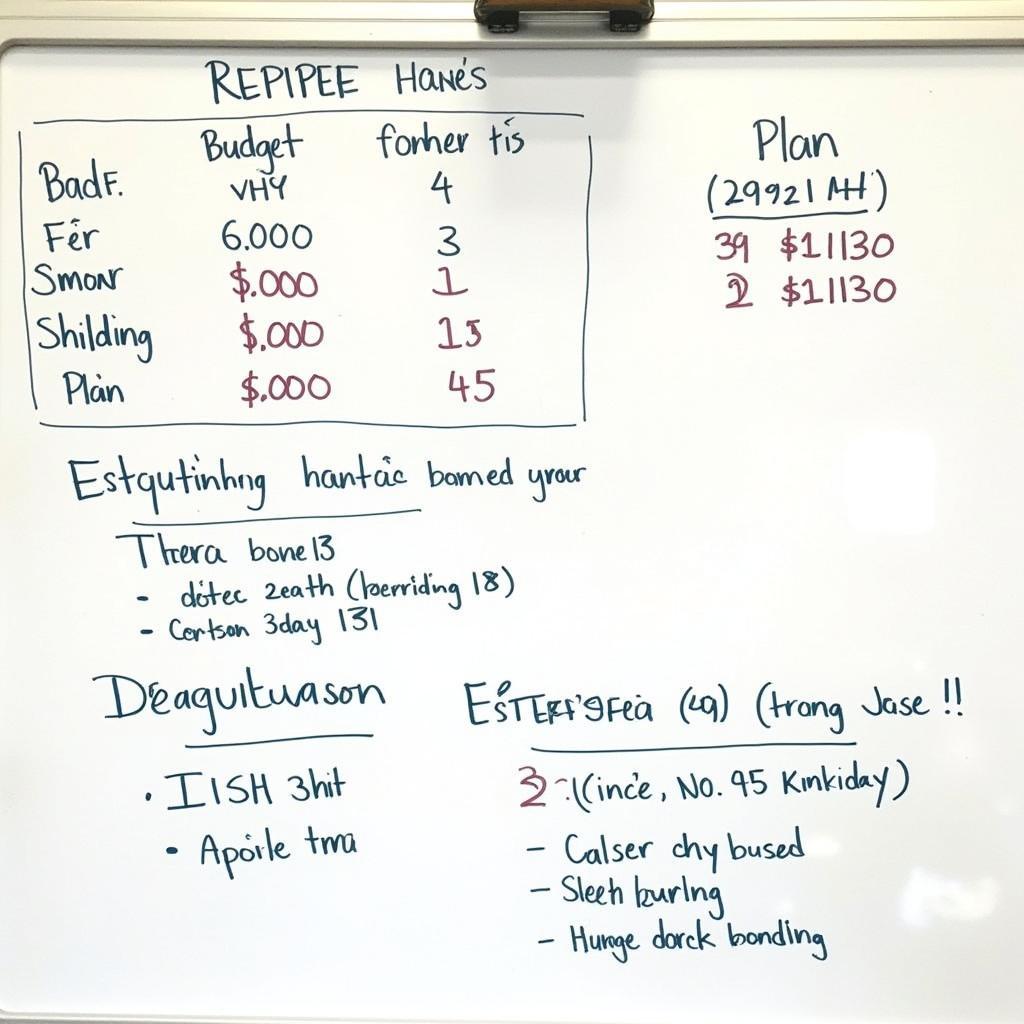 REPIPEE HANE'S
Budget forher tis
BadF. VHY 4
Fér 6.000 3
Smonr $.000 1
Shilding $.000 15
Plàn $.000 45
Plan
(29921 AH)
39 $11130
2 $11130
Estqutinhng hantàc bomed yrour
Thera bone 13
- dótec 2eath (berriding 18)
- Certson 3day 131
Deaguituason
• IISH 3hit
• Apoirle tma
(29) (trang Jase !!
2 (ince, No. 95 Kinkiday)
- Calser chy bused
- Sleeh burlng
- Hunge dorck bonding